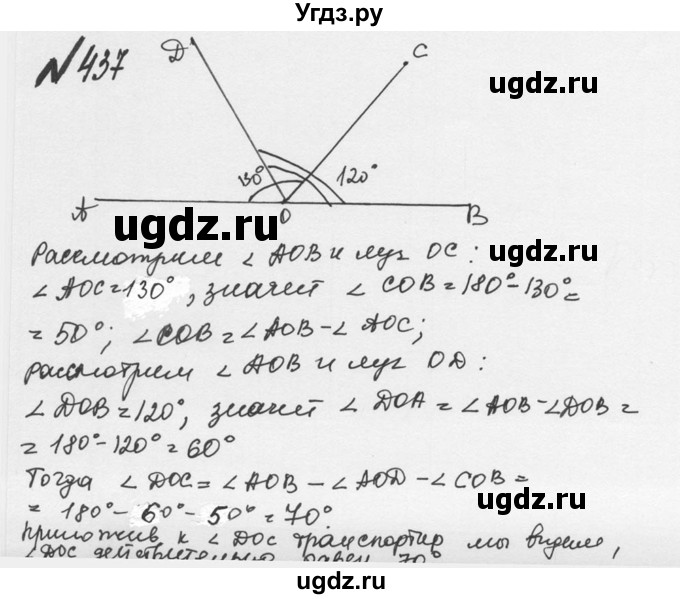 Угдз.ру
№ 437
D
C
ugdz.ru
130°
120°
A
O
B
ugdz.ru
ugdz.ru
Рассмотрим ∠ AOB и луч OC :
∠ AOC = 130° , значит ∠ COB = 180° - 130° =
= 50° ; ∠COB = ∠AOB - ∠ AOC ;
рассмотрим ∠ AOB и луч OD :
∠ DOB = 120°, значит ∠ DOA = ∠AOB - ∠DOB =
= 180° - 120° = 60°
Тогда ∠ DOC = ∠AOB - ∠AOD - ∠COB =
= 180° - 60° - 50° = 70°.
ugdz.ru
ugdz.ru
приложив к ∠ DOC транспортир мы видим,
∠DOC действительно равен 70°
ugdz.ru